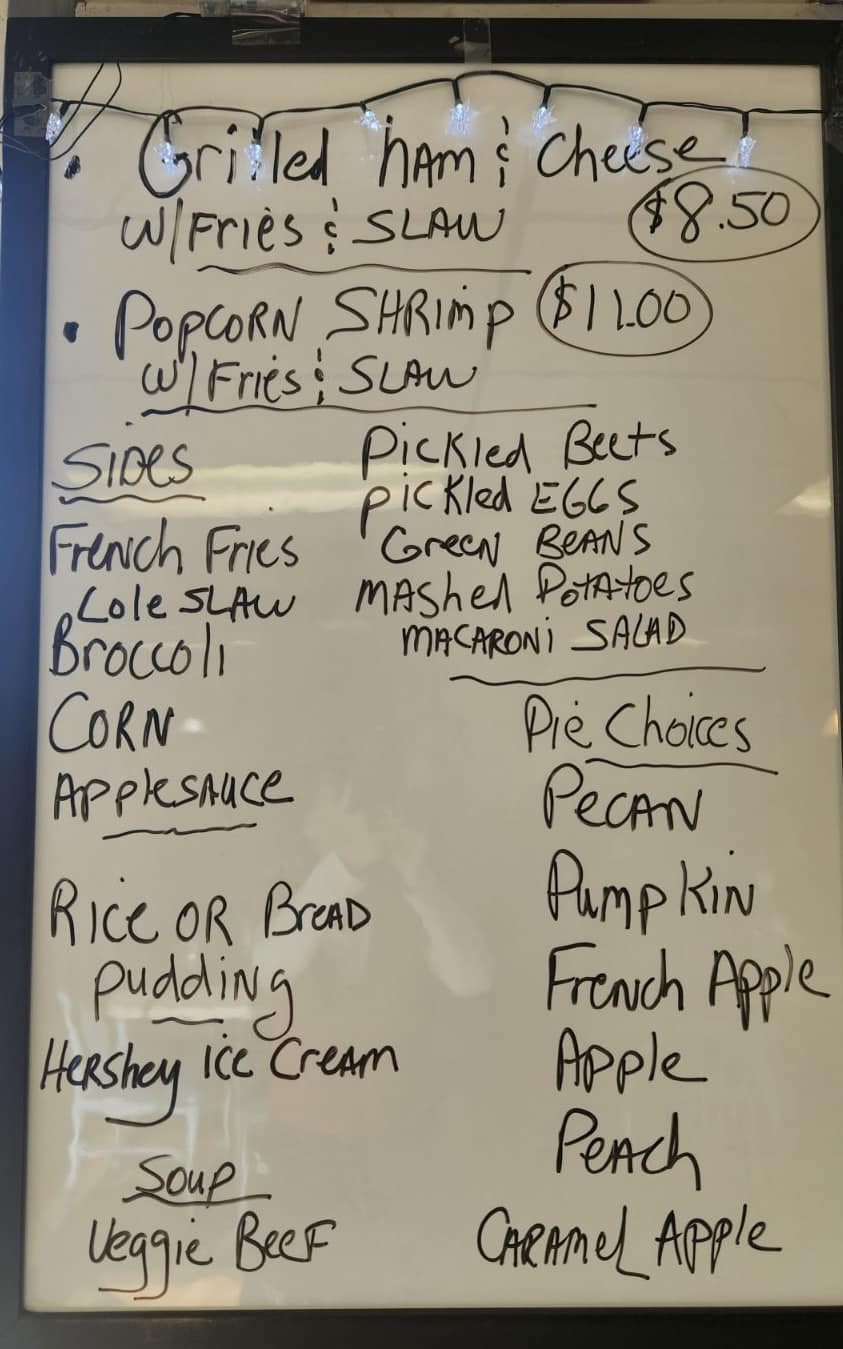 • Grilled ham & Cheese
W/Fries & SLAW $8.50
• POPCORN SHRIMP $11.00
W/Fries & SLAW
SIDES
French Fries
Cole SLAW
Broccoli
CORN
Applesauce
Pickled Beets
pickled EGGS
Green BEANS
MAshed PotAtoes
MACARONi SALAD
Rice OR BreAD
pudding
Hershey Ice Cream
Soup
Veggie BeeF
Pie Choices
PecAN
PumpkiN
French Apple
Apple
PeAch
CARAmel Apple